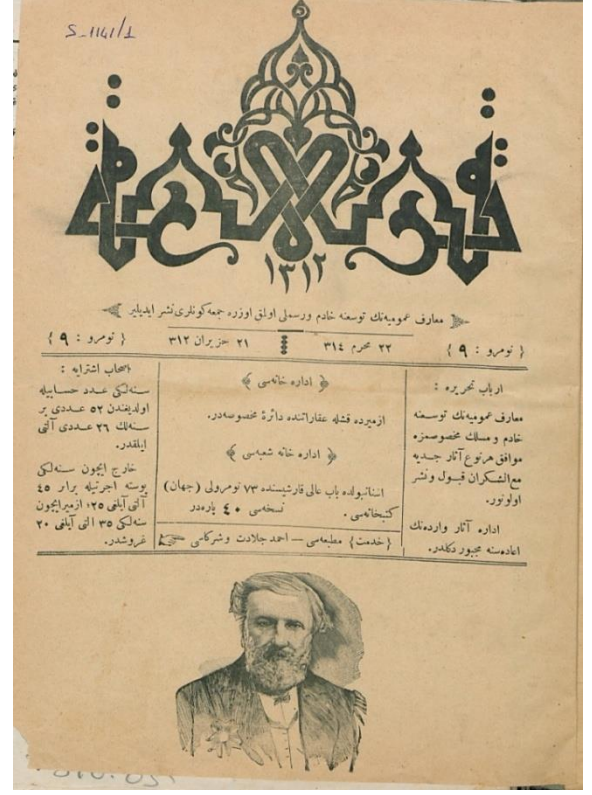 S-1141/1
١٣١٢
معارف عموميه‌نك توسعنه خادم و رسملى اولق اوزره جمعه كونلرى نشر ايديلير
{ نومرو : ٩ }
٢٢ محرم ٣١٤
٢١ حزيران ٣١٢
{ نومرو : ٩ }
ارباب تحريره :
معارف عموميه‌نك توسعنه
خادم و مسلك مخصوصمزه
موافق هر نوع آثار جديه
مع الشكران قبول و نشر
اولونور.
اداره آثار وارده‌نك
اعاده‌سنه مجبور دكلدر.
﴿ اداره خانه‌سى ﴾
ازميرده قشله عقاراتنده دائرۀ مخصوصه‌در.
﴿ اداره خانه شعبه‌سى ﴾
استانبولده باب عالى قارشيسنده ٧٣ نومرولى (جهان)
كتبخانه‌سى . نسخه‌سى ٤٠ پاره‌در
{خدمت} مطبعه‌سى — احمد جلادت و شركاسى
اصحاب اشترايه :
سنه‌لكى عدد حسابيله
اولديغندن ٥٢ عددى بر
سنه‌لك ٢٦ عددى آلتى
ايلقدر.
خارج ايچون سنه‌لكى
پوسته اجرتيله برابر ٤٥
آلتى آيلغى ٢٥؛ ازمير ايچون
سنه‌لكى ٣٥ التى آيلغى ٢٠
غروشدر.